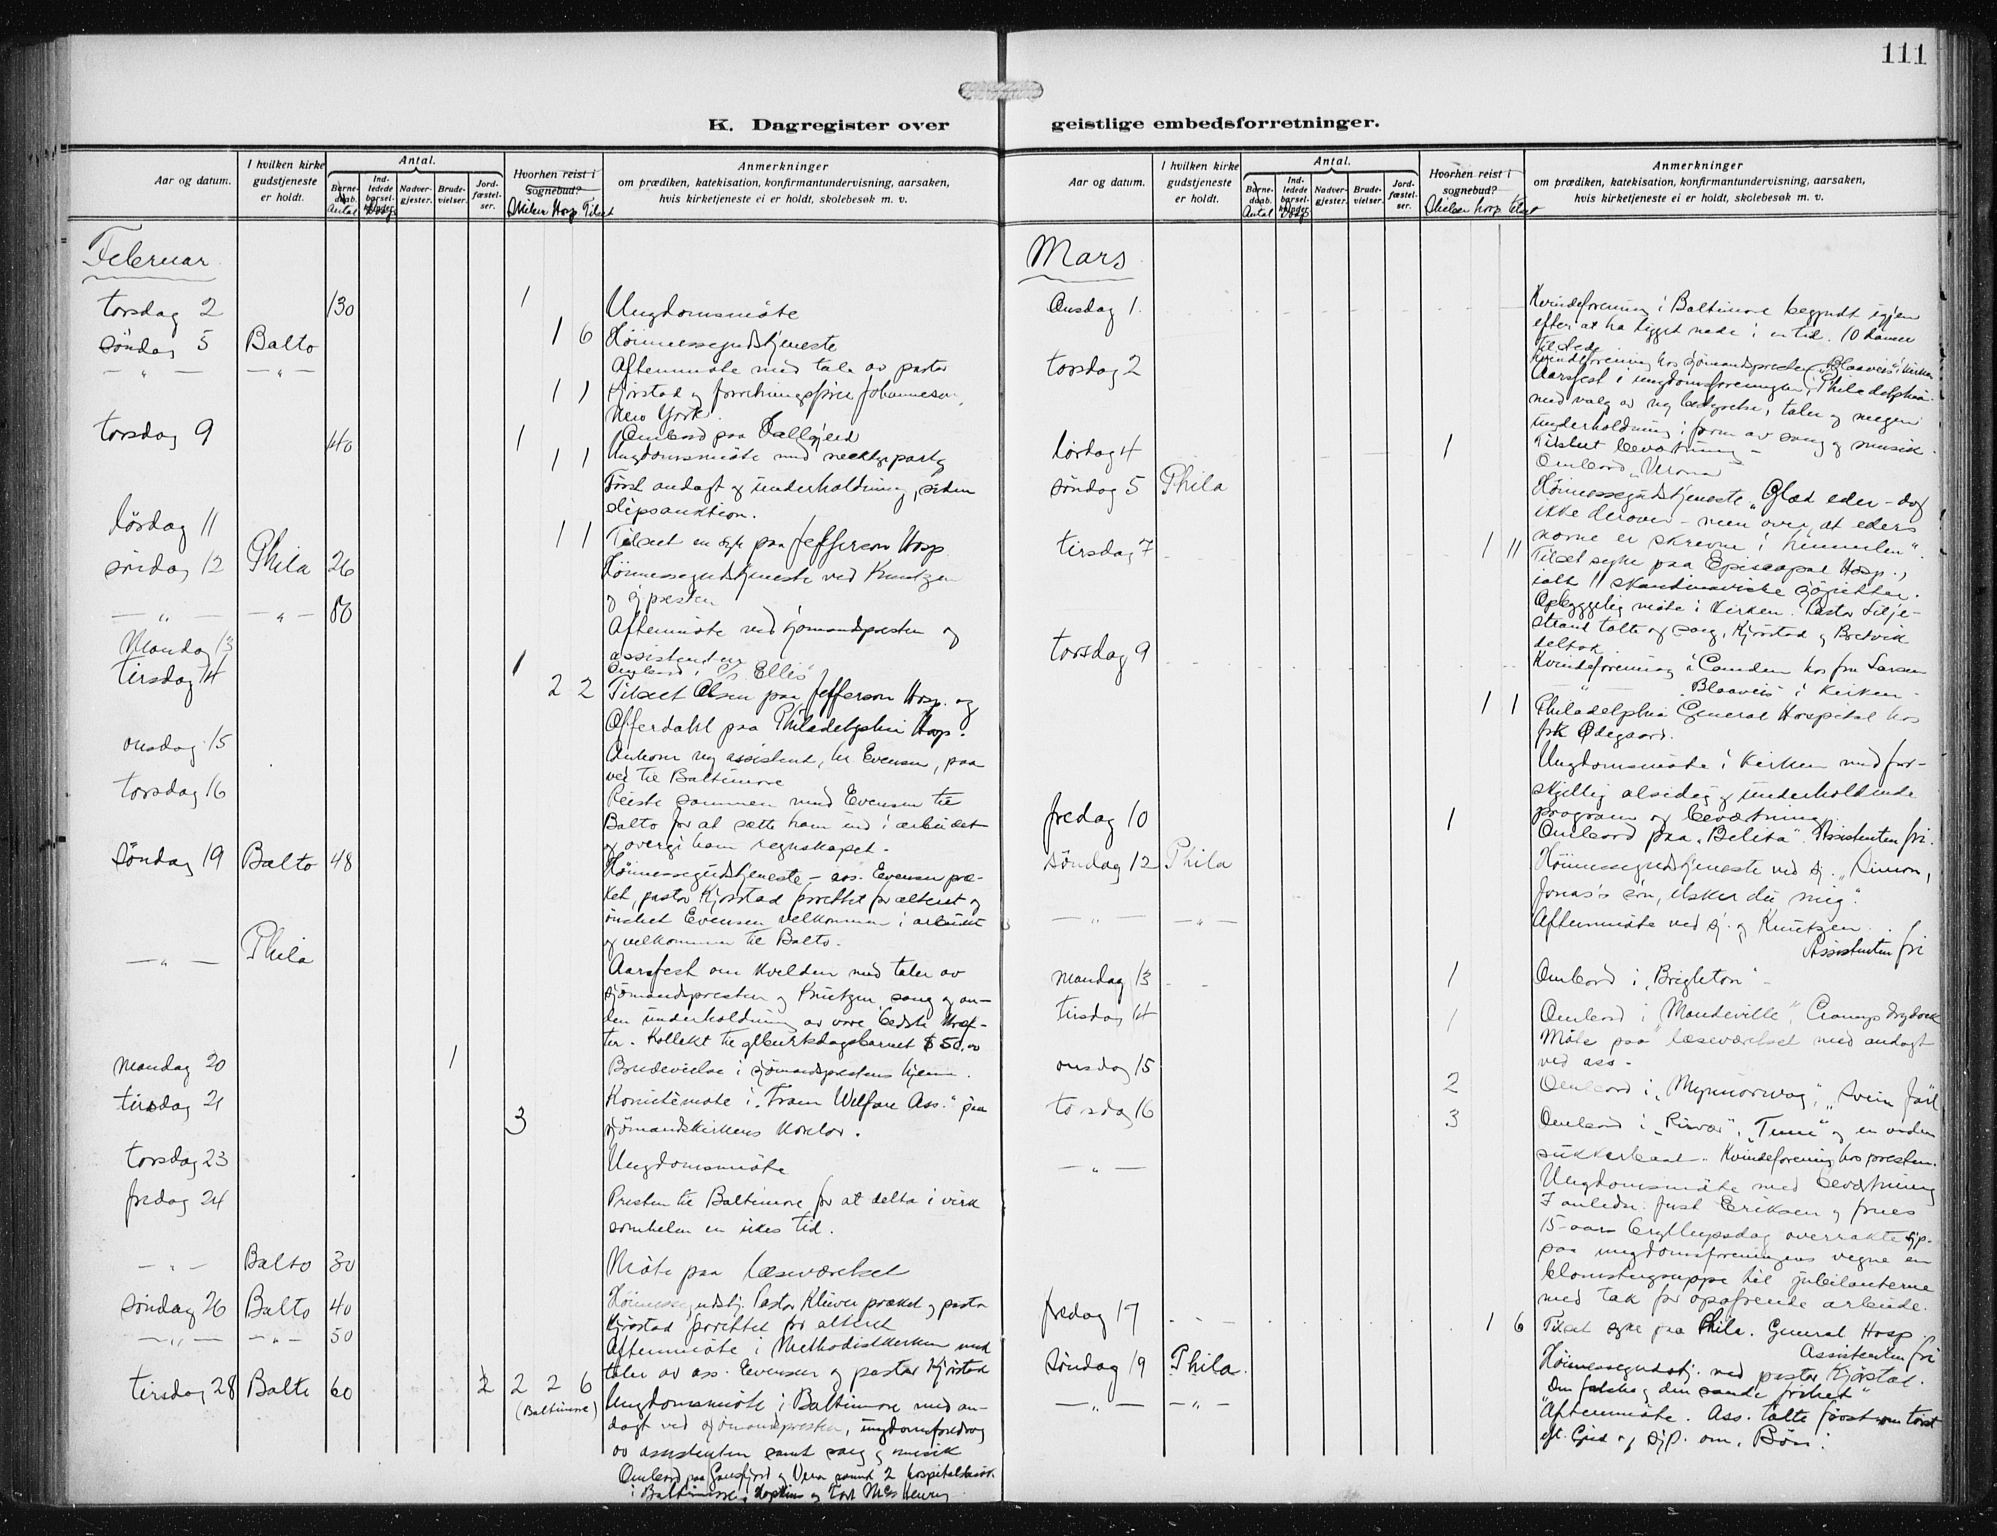 111
K. Dagregister over geistlige embedsforretninger.
Aar og datum.
I hvilken kirke gudstjeneste er holdt.
Antal.
Barnedaab.
Indledede barselkvinder.
Nadvergjester.
Brudevielser.
Jordfæstelser.
Hvorhen reist i sognebud?
Anmerkninger
om prædiken, katekisation, konfirmantundervisning, aarsaken,
hvis kirketjeneste ei er holdt, skolebesøk m. v.
Antal
Hosp Tilset
Februar
torsdag 2 130 1 Ungdomsmöte
söndag 5 Balto 1 6 Höimessegudstjeneste
— " — — " — Aftenmöte med tale av pastor
1 1 Kjörstad og forretningsförer Johannesen,
New York.
torsdag 9 40 1 Ombord paa Dallfjeld
1 1 Ungdomsmöte med necktyeparty
Först andagt og underholdning, siden
slipsauktion.
lördag 11 1 1 Tilset en syk paa Jefferson Hosp
söndag 12 Phila 26 Höimessegudstjeneste ved Knutzen
og sjpresten
— " — — " — 80 Aftenmöte ved sjömandspresten og
assistenten
Mandag 13 1 Ombord i S/S Ellis
tirsdag 14 2 2 Tilset Olsen paa Jefferson Hosp. og
Offerdahl paa Philadelphia Hosp.
onsdag 15 Ankom ny assistent, hr Evensen, paa
vei til Baltimore
torsdag 16 Reiste sammen med Evensen til
Balto for at sætte ham ind i arbeidet
og overgi ham regnskapet.
söndag 19 Balto 48 Höimessegudstjeneste – ass. Evensen præ-
ket, pastor Kjörstad forrettet for alteret og
önsket Evensen velkommen i arbeidet
og velkommen til Balto.
— " — Phila Aarsfest om kvelden med taler av
sjömandspresten og Knutzen, sang og an-
den underholdning av vore bedste kræf-
ter. Kollekt til geburtsdagsbarnet $50.00
Mandag 20 1 Brudevielse i sjömandsprestens hjem.
tirsdag 21 3 Komitemöte i "Fram Welfare Ass." paa
sjömandskirkens kontor.
torsdag 23 Ungdomsmöte
fredag 24 Presten til Baltimore for at delta i virk
somheten en ukes tid.
— " — Balto 30 Möte paa læseværelset
söndag 26 Balto 40 Höimessegudstj. Pastor Klüver præket og pastor
Kjörstad forrettet for alteret
— " — — " — 50 Aftenmöte i Methodistkirken med
taler av ass. Evensen og pastor Kjörstad
tirsdag 28 Balto 60 2 2 2 6 Ungdomsmöte i Baltimore med an-
(Baltimore)
dagt ved sjömandspresten, ungdomsforedrag
av assistenten samt sang og musik
Ombord paa og Vera samt 2 hospitalsbesök
i Baltimore, Hopkins og Fort McHenry
Aar og datum.
I hvilken kirke gudstjeneste er holdt.
Antal.
Barnedaab.
Indledede barselkvinder.
Nadvergjester.
Brudevielser.
Jordfæstelser.
Hvorhen reist i sognebud?
Anmerkninger
om prædiken, katekisation, konfirmantundervisning, aarsaken,
hvis kirketjeneste ei er holdt, skolebesøk m. v.
Antal
Hosp Tilset
Mars
Onsdag 1. Kvindeforening i Baltimore begyndt igjen
efter at ha ligget nede i en tid. 10 damer
tilstede
torsdag 2 Kvindeforening hos sjömandspresten ("Blaaveis" i kirken
Aarsfest i ungdomsforeningen i Philadelphia
med valg av ny bestyrelse, taler og megen
underholdning i form av sang og musik.
Tilslut bevertning –
lördag 4 1 Ombord "Verona"
söndag 5 Phila Höimessegudstjeneste "Glæd eder – dog
ikke derover – men over, at eders
navne er skrevne i himmelen".
tirsdag 7 1 11 Tilset syke paa Episcopal Hosp.,
ialt 11 skandinaviske sjögutter.
Opbyggelig möte i kirken. Pastor Lilje-
strand talte og sang, Kjörstad og Bredvik
deltok.
torsdag 9 Kvindeforening i Camden hos fru Larsen
— " — Blaaveis i kirken –
1 1 Philadelphia General Hospital hos
frk Ödegaard.
Ungdomsmöte i kirken med for-
skjellig alsidig og underholdende
program og bevertning
fredag 10 1 Ombord paa "Belita". Assistenten fri.
söndag 12 Phila Höimessegudstjeneste ved sj. "Simon,
Jonas's sön, elsker du mig".
— " — — " — Aftenmöte ved sj. og Knutzen.
Assistenten fri
mandag 13 1 Ombord i "Brighton"
tirsdag 14 1 Ombord i "Mandeville", Cramps drydock
Möte paa læseværelset med andagt
ved ass –
onsdag 15 2 Ombord i "Mynnorway", "Svein Jarl
torsdag 16 3 Ombord i "Risvær", "Tunu" og en anden
sukkerbaat – Kvindeforening hos presten.
— " — Ungdomsmöte med bevertning
I anledn. just Eriksen og frues
15-aars bryllupsdag overrakte sjp.
paa ungdomsforeningens vegne en
blomstergruppe til jubilanterne
med tak for opofrende arbeide.
fredag 17 1 6 Tilset syke paa Phila. General Hosp
Assistenten fri
söndag 19 Phila. Höimessegudstj. ved pastor Kjörstad.
"Den falske og den sande frihet"
— " — — " — Aftenmöte. Ass. talte först om törst
eft. Gud og sjp. om. Bön.